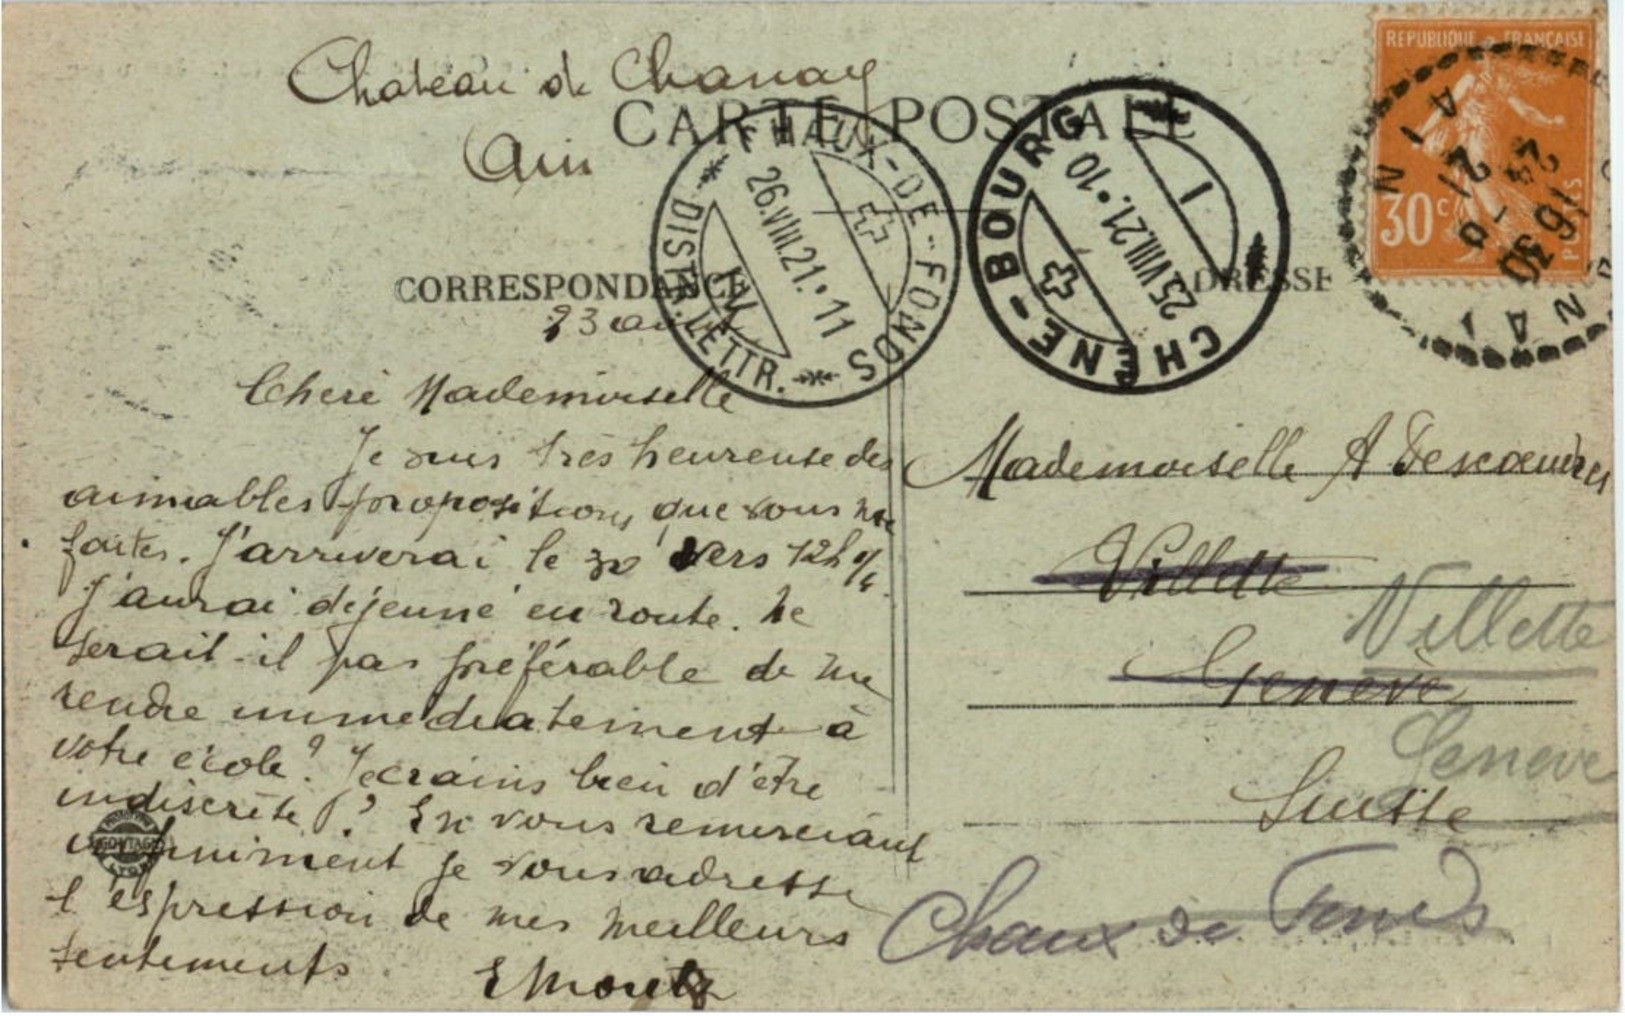 Chateau de Chanay
Ain
CARTE POSTALE
CORRESPONDANCE
ADRESSE
REPUBLIQUE FRANÇAISE
30c
POSTES
CHAUX-DE-FONDS
26.VIII.21.11
DISTR. LETTR.
IV
CHÊNE-BOURG
25.VIII.21.10
1
16 30
24 - 8
21
23 août
Cheré Mademoiselle
Je suis très heureuse des
aimables propositions que vous me
faites. J'arriverai le 30 vers 12h 1/4
J'aurai déjeuné en route. Ne
serait-il pas préférable de me
rendre immediatement à
votre école? Je crains bien d'être
indiscrète? En vous remerciant
infiniment je vous adresse
l'espression de mes meilleurs
sentements
Mademoiselle A Descoeudres
Villette
Genève
Suisse
Villette
Geneve
Chaux de Fonds